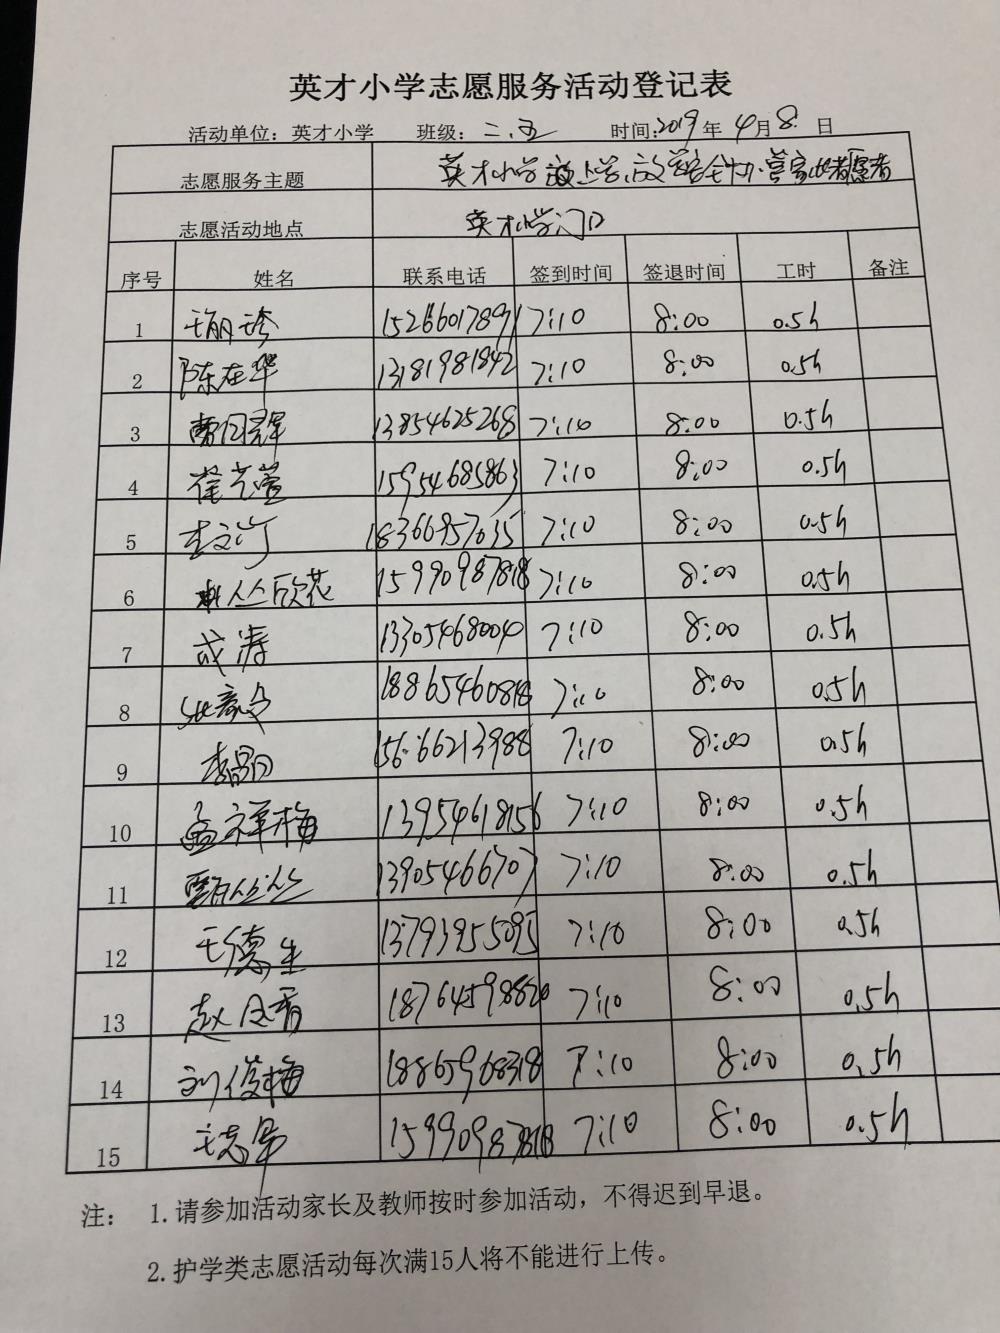 英才小学志愿服务活动登记表
活动单位：英才小学 班级：二.五 时间：2019年4月8日
志愿服务主题 英才小学 上学、放学
志愿活动地点 英才小学门口
序号 姓名 联系电话 签到时间 签退时间 工时 备注
1 15266017891 7:10 8:00 0.5h
2 陈在华 13181981842 7:10 8:00 0.5h
3 13854625268 7:10 8:00 0.5h
4 15954685863 7:10 8:00 0.5h
5 18366957635 7:10 8:00 0.5h
6 丛欣花 15990987818 7:10 8:00 0.5h
7 成涛 13305468004 7:10 8:00 0.5h
8 18865460818 7:10 8:00 0.5h
9 15666213988 7:10 8:00 0.5h
10 孟祥梅 13954618156 7:10 8:00 0.5h
11 13905466707 7:10 8:00 0.5h
12 王德生 13793955095 7:10 8:00 0.5h
13 赵 香 18764598820 7:10 8:00 0.5h
14 刘俊梅 18865968318 7:10 8:00 0.5h
15 王志军 15990987818 7:10 8:00 0.5h
注： 1.请参加活动家长及教师按时参加活动，不得迟到早退。
2.护学类志愿活动每次满15人将不能进行上传。